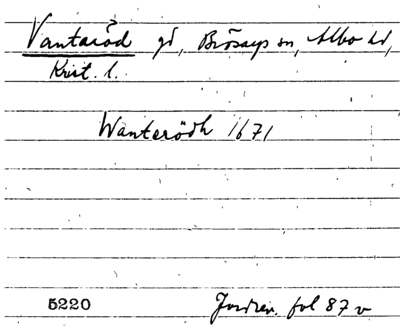 Vantaröd gd, Brösarps sn, Albo hd,
Krist. l.
Wanterödh 1671
5220 Jordrev. fol 87 v